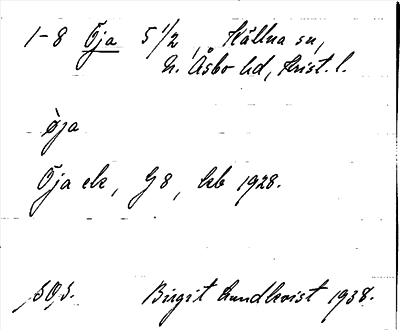 1-8 Öja 5 1/2, Källna sn,
N. Åsbo hd, Krist. l.
òja
Öja ek, G8, kb 1928.
Birgit Lundkvist 1938.